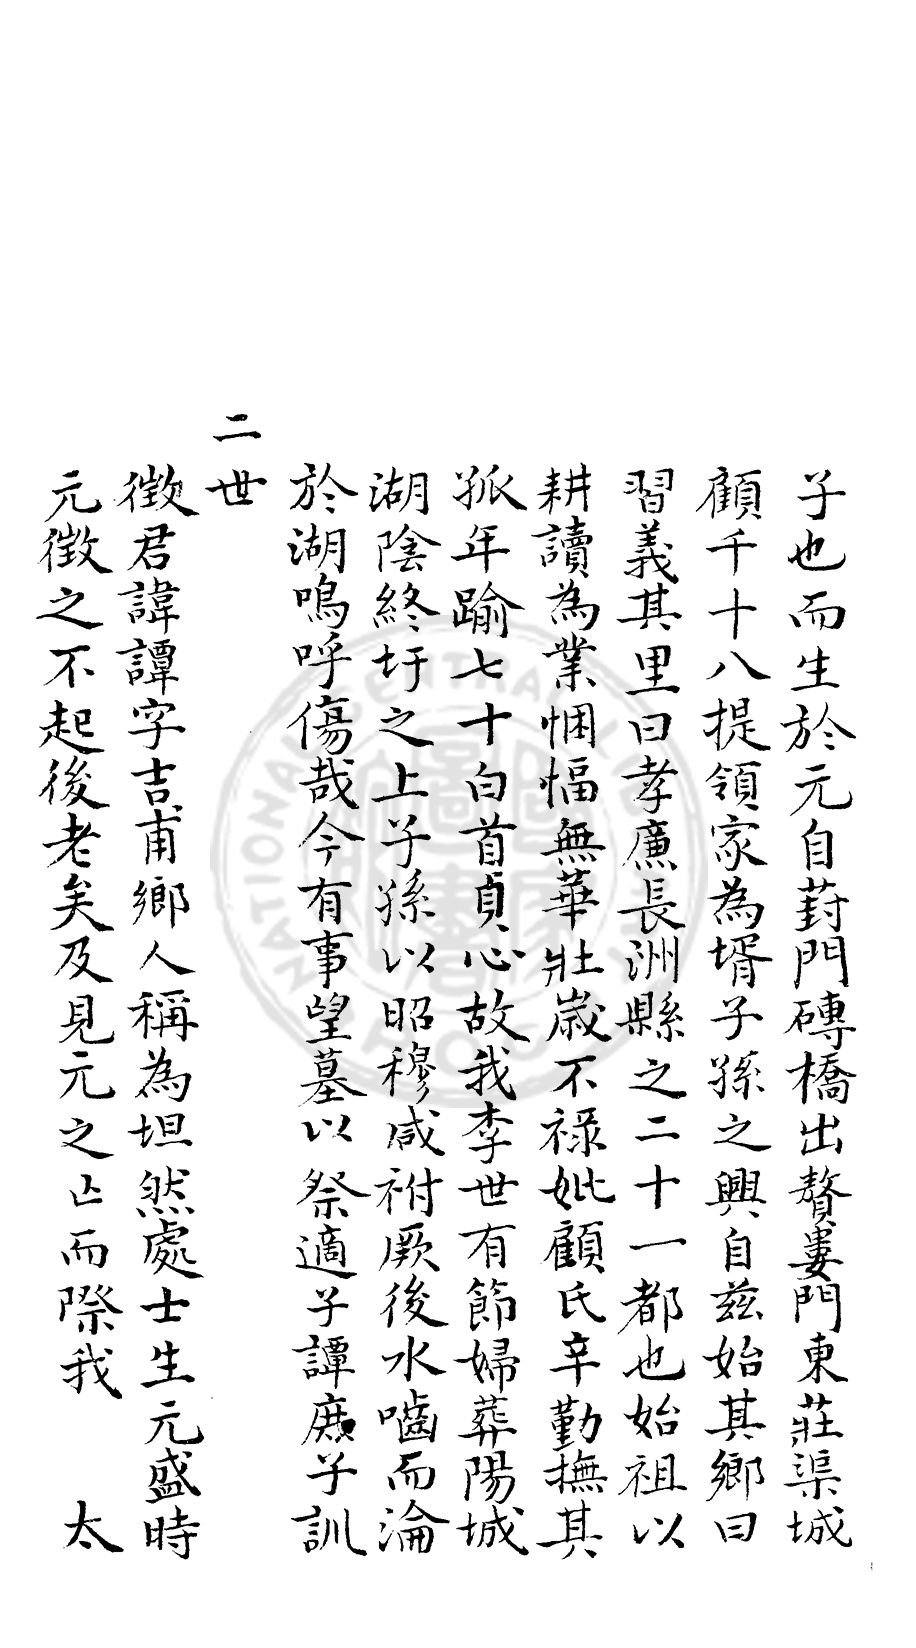 子也而生於元自葑門磚橋出贅婁門東莊渠城
顧千十八提領家為壻子孫之興自茲始其鄉曰
習義其里曰孝廉長洲縣之二十一都也始祖以
耕讀為業悃愊無華壯歲不祿妣顧氏辛勤撫其
孤年踰七十白首貞心故我李世有節婦葬陽城
湖陰終圩之上子孫以昭穆咸祔厥後水嚙而淪
於湖嗚呼傷哉今有事望墓以祭適子譚庶子訓
二世
徵君諱譚字吉甫鄉人稱為坦然處士生元盛時
元徵之不起後老矣及見元之亡而際我　太
NATIONAL CENTRAL LIBRARY
國家圖書館